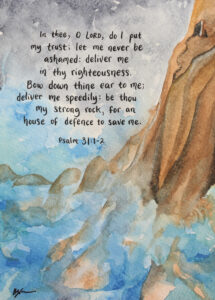 In thee, O LORD, do I put
my trust; let me never be
ashamed: deliver me
in thy righteousness.
Bow down thine ear to me;
deliver me speedily: be thou
my strong rock, for an
house of defence to save me.
Psalm 31:1-2